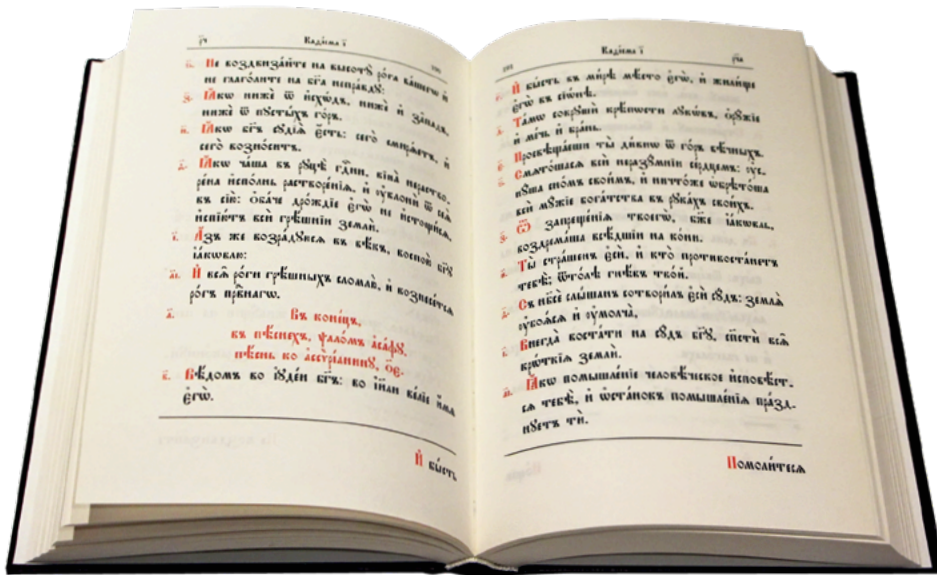 р҃ч Каѳі́сма і҃ 190
ѕ҃. Не воздвиза́йте на высотꙋ̀ ро́га ва́шегѡ и҆
не глаго́лите на бг҃а непра́вдꙋ:
з҃. Ꙗ҆́кѡ нижѐ ѿ и҆схѡ́дъ, нижѐ ѿ за́падъ,
нижѐ ѿ пꙋсты́хъ го́ръ.
и҃. Ꙗ҆́кѡ бг҃ъ сꙋдїѧ̀ є҆́сть: сего̀ смирѧ́етъ, и҆
сего̀ возно́ситъ.
ѳ҃. Ꙗ҆́кѡ ча́ша въ рꙋцѣ̀ гдⷭ҇ни, вїна̀ нераство-
ре́на и҆спо́лнь растворе́нїѧ, и҆ ᲂу҆клонѝ ѿ сеѧ̀
въ сїю̀: ѻ҆ба́че дро́ждїе є҆гѡ̀ не и҆стощи́сѧ,
и҆спїю́тъ всѝ грѣ́шнїи землѝ.
і҃. А҆́зъ же возра́дꙋюсѧ въ вѣ́къ, воспою̀ бг҃ꙋ
і҆а́кѡвлю:
а҃і. И҆ всѧ̑ ро́ги грѣ́шныхъ сломлю̀, и҆ вознесе́тсѧ
ро́гъ првⷣнагѡ.
а҃. Въ коне́цъ,
въ пѣ́снехъ, ѱало́мъ а҆са́фꙋ,
пѣ́снь ко а҆ссѷрїа́нинꙋ, о҃е.
в҃. Вѣ́домъ во і҆ꙋде́и бг҃ъ: во і҆и҃ли ве́лїе и҆́мѧ
є҆гѡ̀.
И҆ бы́сть
191 Каѳі́сма і҃ рч҃а
г҃. И҆ бы́сть въ ми́рѣ мѣ́сто є҆гѡ̀, и҆ жили́ще
є҆гѡ̀ въ сїѡ́нѣ.
д҃. Та́мѡ сокрꙋшѝ крѣ́пѡсти лꙋкѡ́въ, ѻ҆рꙋ́жїе
и҆ ме́чь и҆ бра́нь.
є҃. Просвѣща́еши ты̀ ди́внѡ ѿ го́ръ вѣ́чныхъ.
ѕ҃. Смѧто́шасѧ всѝ неразꙋ́мнїи се́рдцемъ: ᲂу҆с-
нꙋ́ша сно́мъ свои́мъ, и҆ ничто́же ѡ҆брѣто́ша
всѝ мꙋ́жїе бога́тства въ рꙋка́хъ свои́хъ.
з҃. Ѿ запреще́нїѧ твоегѡ̀, бж҃е і҆а́кѡвль,
воздрема́ша всѣ́дшїи на ко́ни.
и҃. Ты̀ стра́шенъ є҆сѝ, и҆ кто̀ противоста́нетъ
тебѣ̀; ѿто́лѣ гнѣ́въ тво́й.
ѳ҃. Съ нб҃сѐ слы́шанъ сотвори́лъ є҆сѝ сꙋ́дъ: землѧ̀
ᲂу҆боѧ́сѧ и҆ ᲂу҆молча̀,
і҃. Внегда̀ воста́ти на сꙋ́дъ бг҃ꙋ, спⷭ҇тѝ всѧ̑
крѡ́ткїѧ землѝ.
а҃і. Ꙗ҆́кѡ помышле́нїе человѣ́ческое и҆сповѣ́ст-
сѧ тебѣ̀, и҆ ѡ҆ста́нокъ помышле́нїѧ пра́зд-
нꙋетъ тѝ.
Помоли́тесѧ